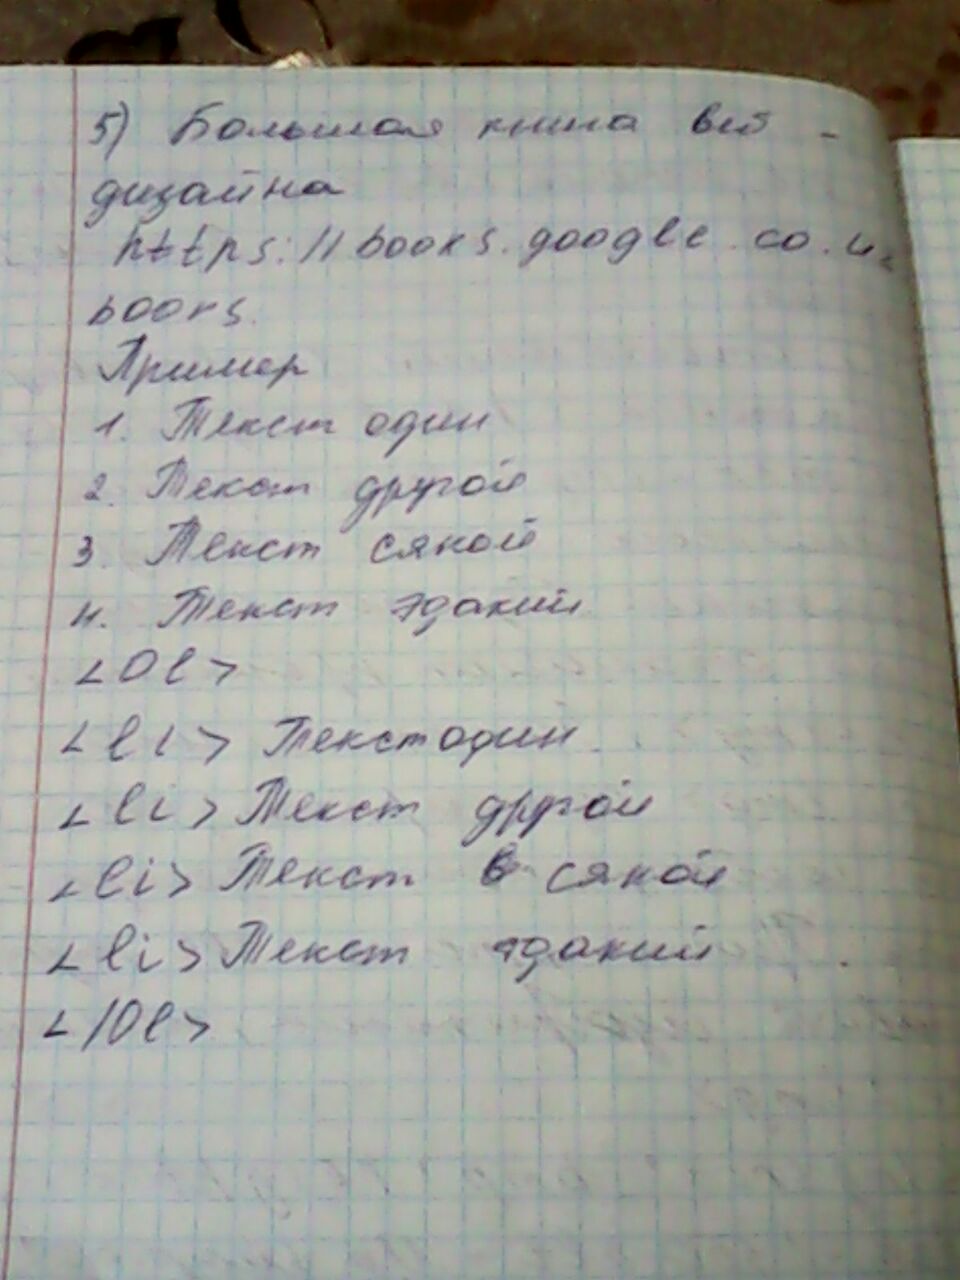 5) Большая книга веб -
дизайна
https://books.google.co.u
books.
Пример
1. Текст один
2. Текст другой
3. Текст сякой
4. Текст эдакий
<Ol>
<li> Текст один
<li> Текст другой
<li> Текст в сякой
<li> Текст эдакий
</Ol>